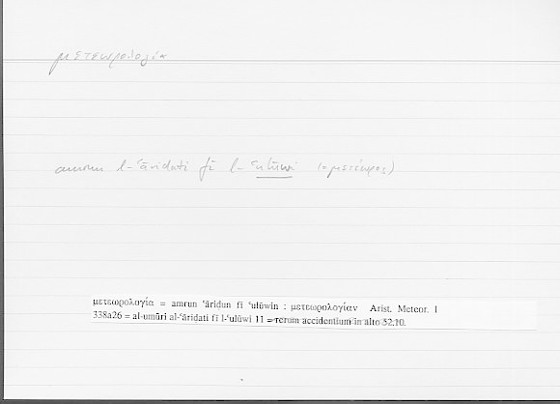 μετεωρολογία
amrun l-ʿāriḍati fī l-ʿulūwi (ο μετέωρος)
μετεωρολογία = amrun ʿāriḍun fī ʿulūwin : μετεωρολογίαν Arist. Meteor. I
338a26 = al-umūri al-ʿāriḍati fī l-ʿulūwi 11 = rerum accidentium in alto 52,10.